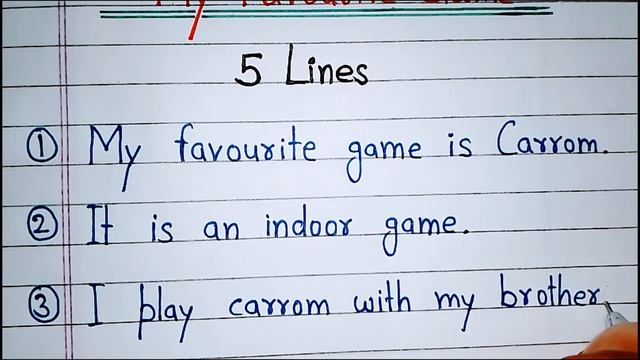 My Favourite Game
5 Lines
① My favourite game is Carrom.
② It is an indoor game.
③ I play carrom with my brother